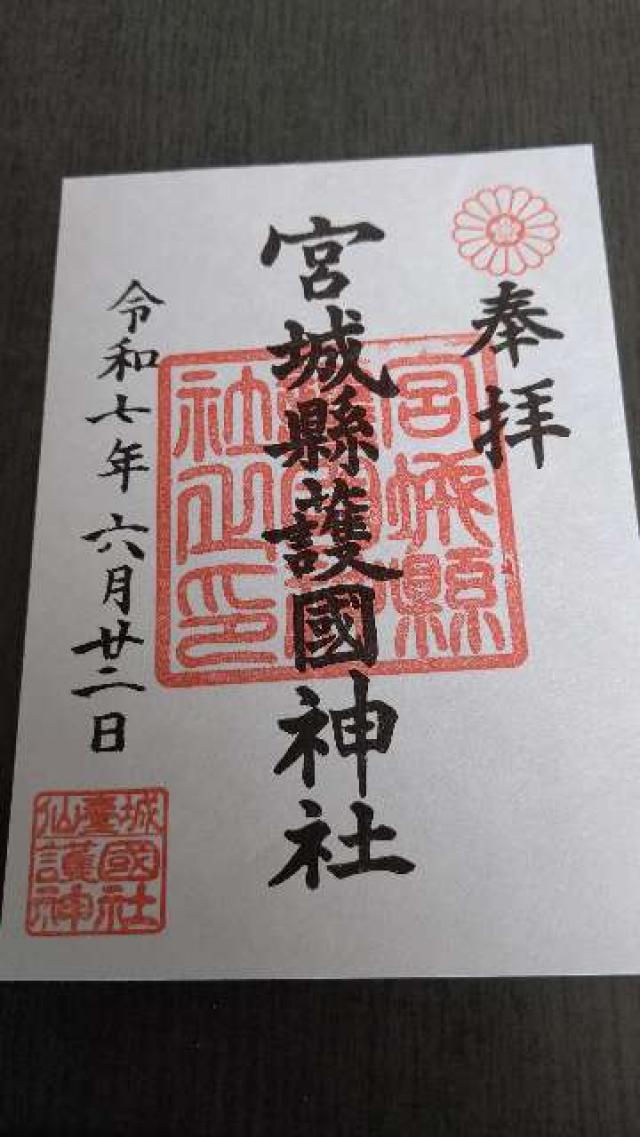 奉拝
宮城縣護國神社
宮城縣
社之印
令和七年六月廿二日
仙臺城
護國
神社